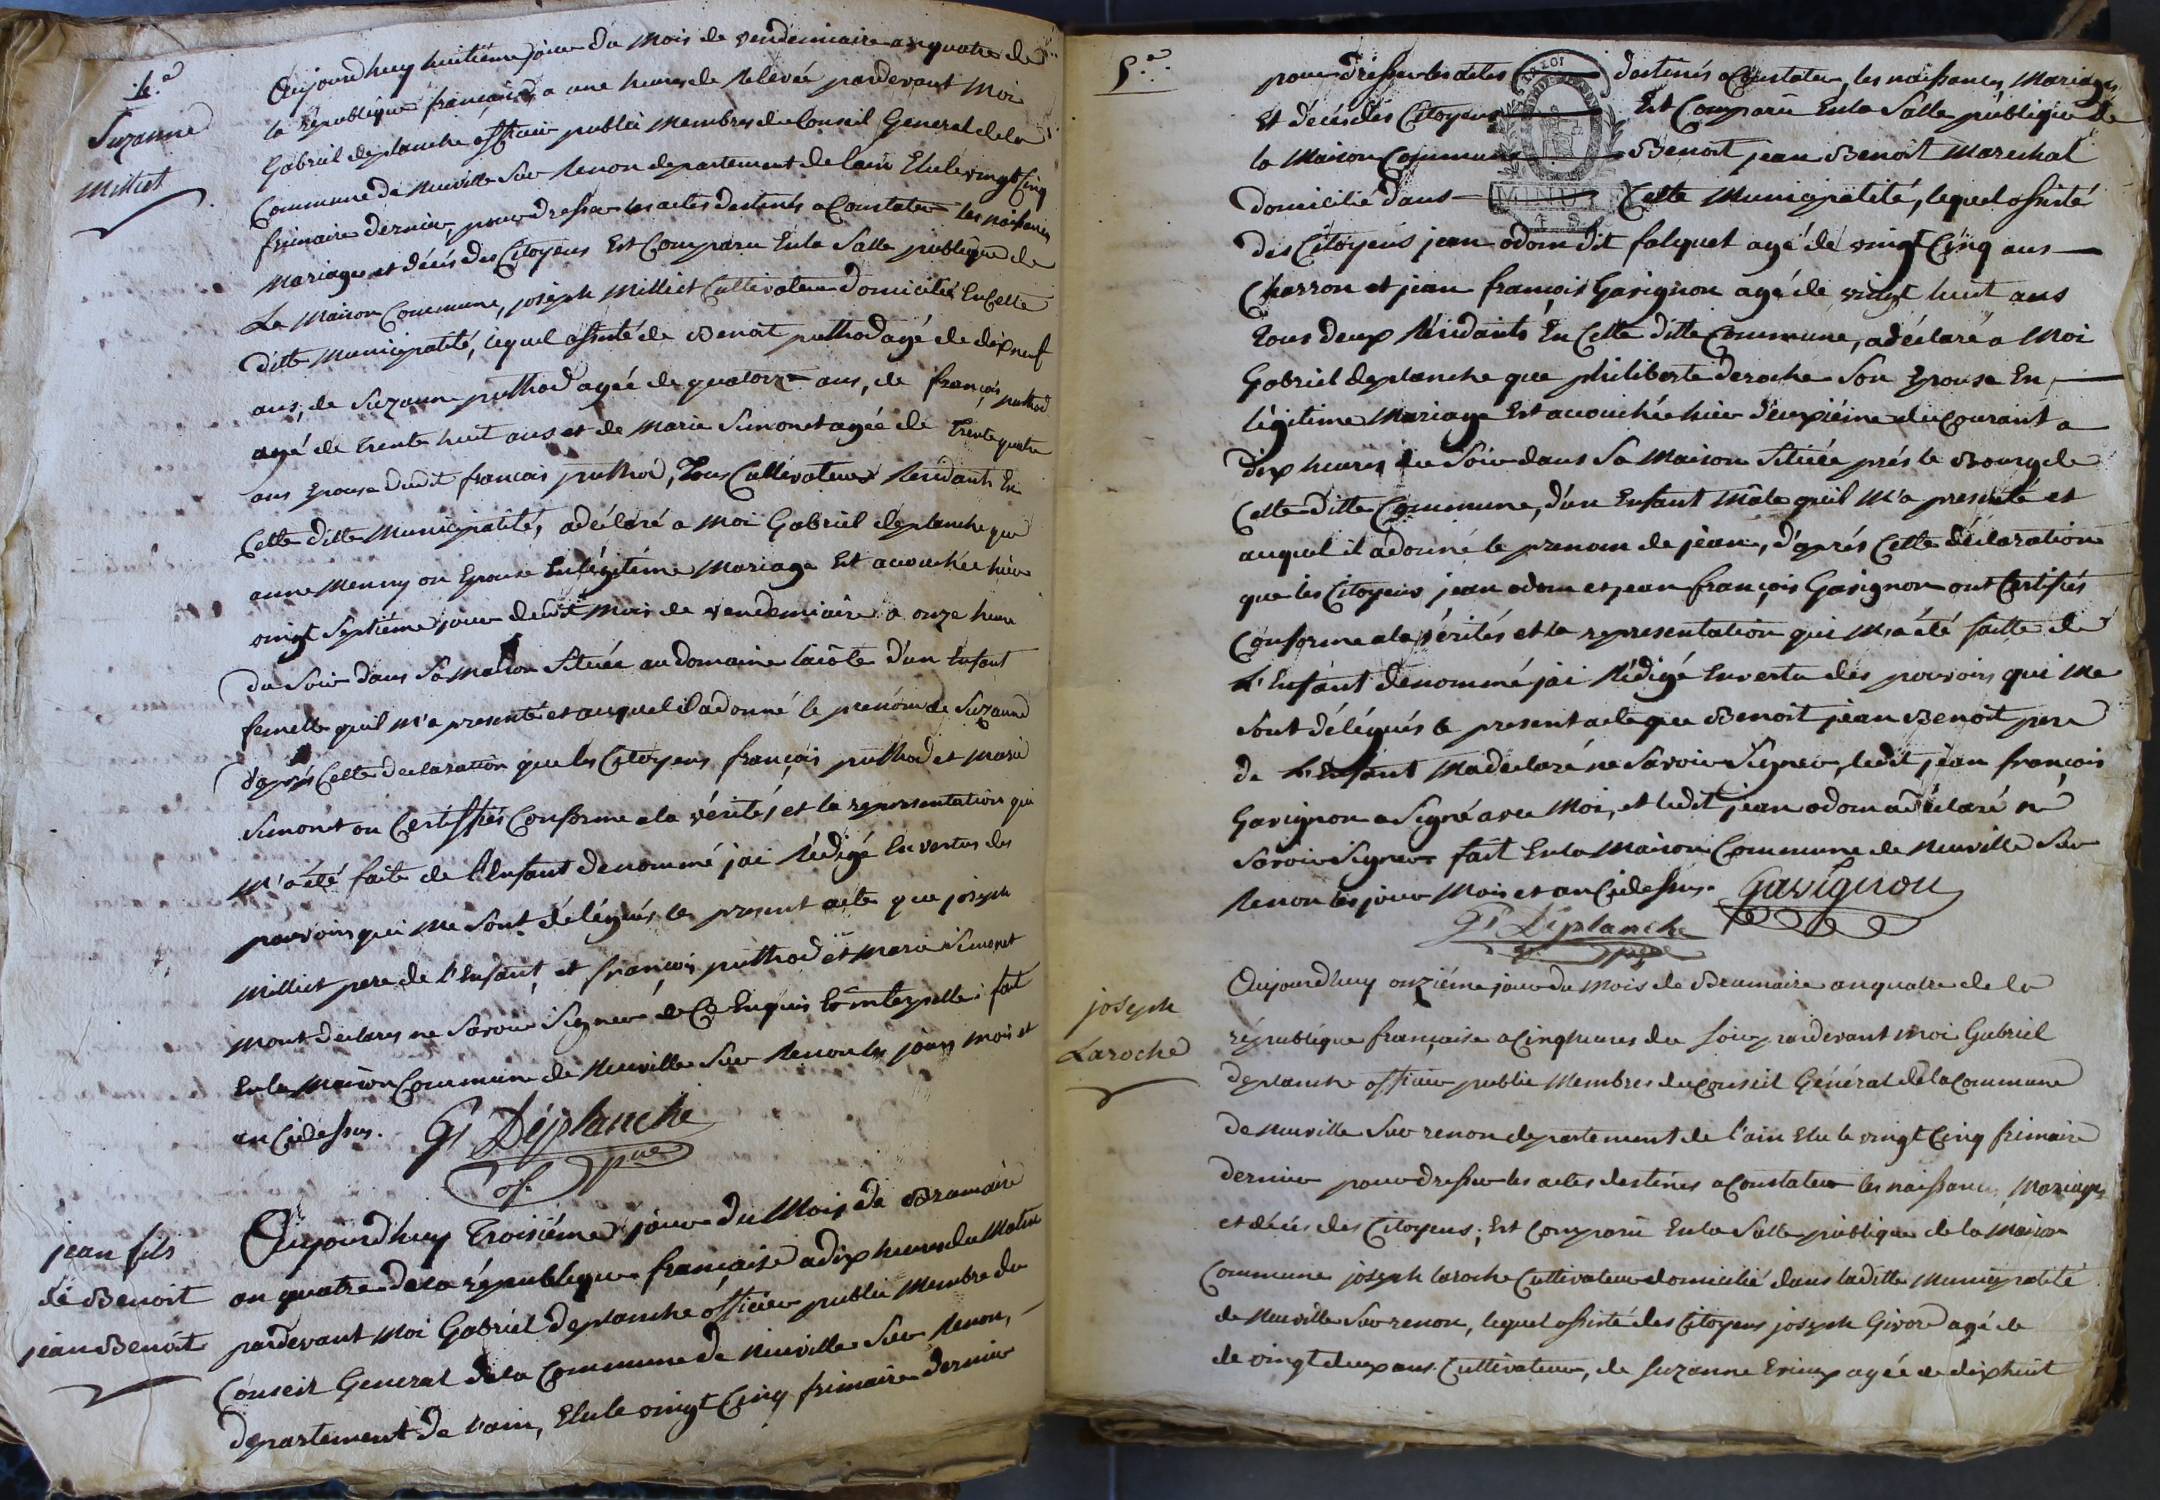 4.e
Suzanne
Milliet
Aujourdhuy huitieme jour du mois de vendemiaire an quatre de
la république française a une heure de Relevée pardevant moi
Gabriel deplanche officier public membres du Conseil General de la
Commune de Neuville Sur Renon departement de lain Elu le vingt Cinq
frimaire dernier, pour dresser les actes destinés a Constater les naissances
mariages et décés des Citoyens Est Comparu En la Salle publique de
La maison Commune, joseph Milliet Cultivateur domicilié En Cette
ditte municipalité, lequel assisté de Benoit puthod agé de dix neuf
ans, de Suzanne puthod agée de quatorze ans, de françois puthod
agé de trente huit ans et de marie Simonet agée de trente quatre
ans Epouse dudit francois puthod, tous Cultivateurs Residants En
Cette ditte municipalité, a déclaré a moi Gabriel deplanche que
anne on Epouse En légitime mariage Est accouchée hier
vingt Septiéme jour dudit mois de vendemiaire a onze heure
du Soir dans Sa maison Située au domaine d'un Enfant
femelle quil m'a presenté et auquel il a donné le prenom de Suzanne
d'aprés Cette declaration que les Citoyens françois puthod et marie
Simonet on Certiffiés Conforme a la vérités et la representation qui
m'a été faite de l'Enfant denommé jai Rédigé En vertus des
pouvoirs qui me Sont délégués le present acte que joseph
Milliet pere de l'Enfant, et françois puthod et marie Simonet
mont declarés ne Savoir Signer de Ce Enquis Et interpellés fait
En la maison Commune de Neuville Sur Renon les jours mois et
an Cidessus. G.l Déplanche
of. p.ue
jean fils
de Benoit
jean Benoit
Aujourdhuy troisiéme jour du Mois de Brumaire
an quatre de la république française a dix heures du Matin
pardevant Moi Gabriel deplanche officier public Membre du
Conseil General de la Commune de Neuville Sur Renon,
departement de l'ain, Elu le vingt Cinq frimaire dernier
5.e
pour dresser les actes destinés a Constater, les naissances, Mariages
Et décés des Citoyens Est Comparu En la Salle publique de
la Maison Commune Benoit jean Benoit Marechal
domicilié dans Cette Municipalité, lequel assisté
des Citoyens jean odom dit falquet agé de vingt Cinq ans
Charron et jean françois Gavignon agé de vingt huit ans
tous deux Résidants En Cette ditte Commune, a déclaré a Moi
Gabriel deplanche que philiberte deroche Son Epouse En
légitime Mariage Est accouchée hier deuxiéme du Courant a
dix heures du Soir dans Sa Maison Située prés le Bourg de
Cette ditte Commune, d'un Enfant Mâle quil m'a presenté et
auquel il a donné le prenom de jean, d'aprés Cette déclaration
que les Citoyens jean odom et jean françois Gavignon ont Certifiés
Conforme a la vérités et la representation qui m'a été faitte de
L'Enfant denommé jai Rédigé En vertu des pouvoirs qui me
Sont délégués le present acte que Benoit jean Benoit pere
de L'Enfant Ma declaré ne Savoir Signer, ledit jean françois
Gavignon a Signé avec Moi, et ledit jean odom a déclaré né
Savoir Signer fait En la Maison Commune de Neuville Sur
Renon les jour Mois et an Cidessus. Gavignon
G.l Déplanche
of. p.ue
joseph
Laroche
Aujourdhuy onziéme jour du Mois de Brumaire an quatre de la
république française a Cinq heures du Soir pardevant Moi Gabriel
deplanche officier public Membres du Conseil Général de la Commune
de Neuville Sur renon departement de l'ain Elu le vingt Cinq frimaire
dernier pour dresser les actes destinés a Constater les naissances, Mariages
et décés des Citoyens; Est Comparu En la Salle publique de la Maison
Commune joseph laroche Cultivateur domicilié dans la ditte Municipalité
de Neuville Sur renon, lequel assisté des Citoyens joseph Givord agé de
de vingt deux ans Cultivateur, de Suzanne agée de dix huit